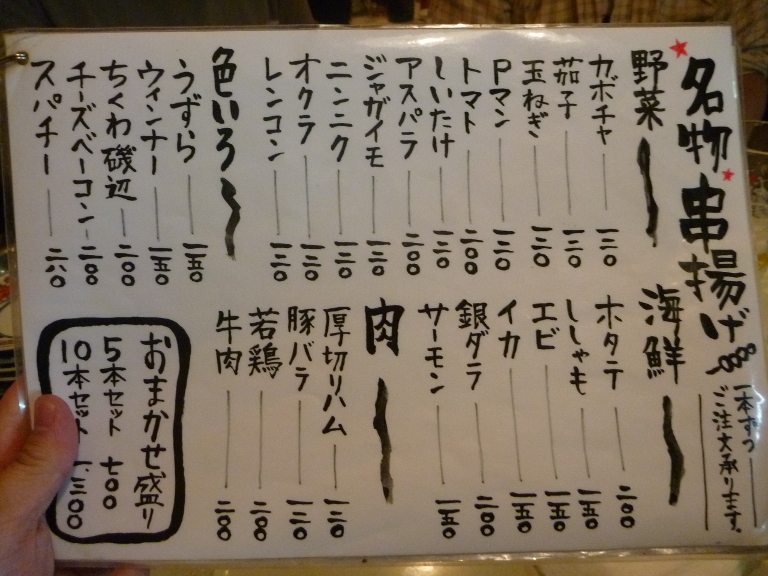 名物串揚げ
一本ずつ
ご注文承ります。
野菜
カボチャ 一三〇
茄子 一三〇
玉ねぎ 一三〇
Pマン 一三〇
トマト 二〇〇
しいたけ 一三〇
アスパラ 二〇〇
ジャガイモ 一三〇
ニンニク 一三〇
オクラ 一三〇
レンコン 一三〇
色いろ
うずら 一五〇
ウィンナー 一五〇
ちくわ磯辺 二〇〇
チーズベーコン 二〇〇
スパチー 二六〇
海鮮
ホタテ 二〇〇
ししゃも 一五〇
エビ 一五〇
イカ 一五〇
銀ダラ 二〇〇
サーモン 一五〇
肉
厚切りハム 一三〇
豚バラ 一三〇
若鶏 二〇〇
牛肉 二〇〇
おまかせ盛り
5本セット 七〇〇
10本セット 一.三〇〇